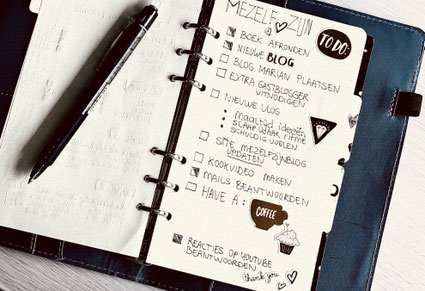 MEZELF ZIJN
TO DO:
BOEK AFRONDEN
NIEUWE BLOG
BLOG MARIAN PLAATSEN
EXTRA GASTBLOGGER
UITNODIGEN
NIEUWE VLOG
maaltijd ideeën
SLAAP WAAK RITME
SCHULDIG VOELEN
SITE MEZELFZIJNBLOG
UPDATEN
KOOKVIDEO MAKEN
MAILS BEANTWOORDEN
HAVE A :
COFFEE
REACTIES OP YOUTUBE
BEANTWOORDEN
thank you